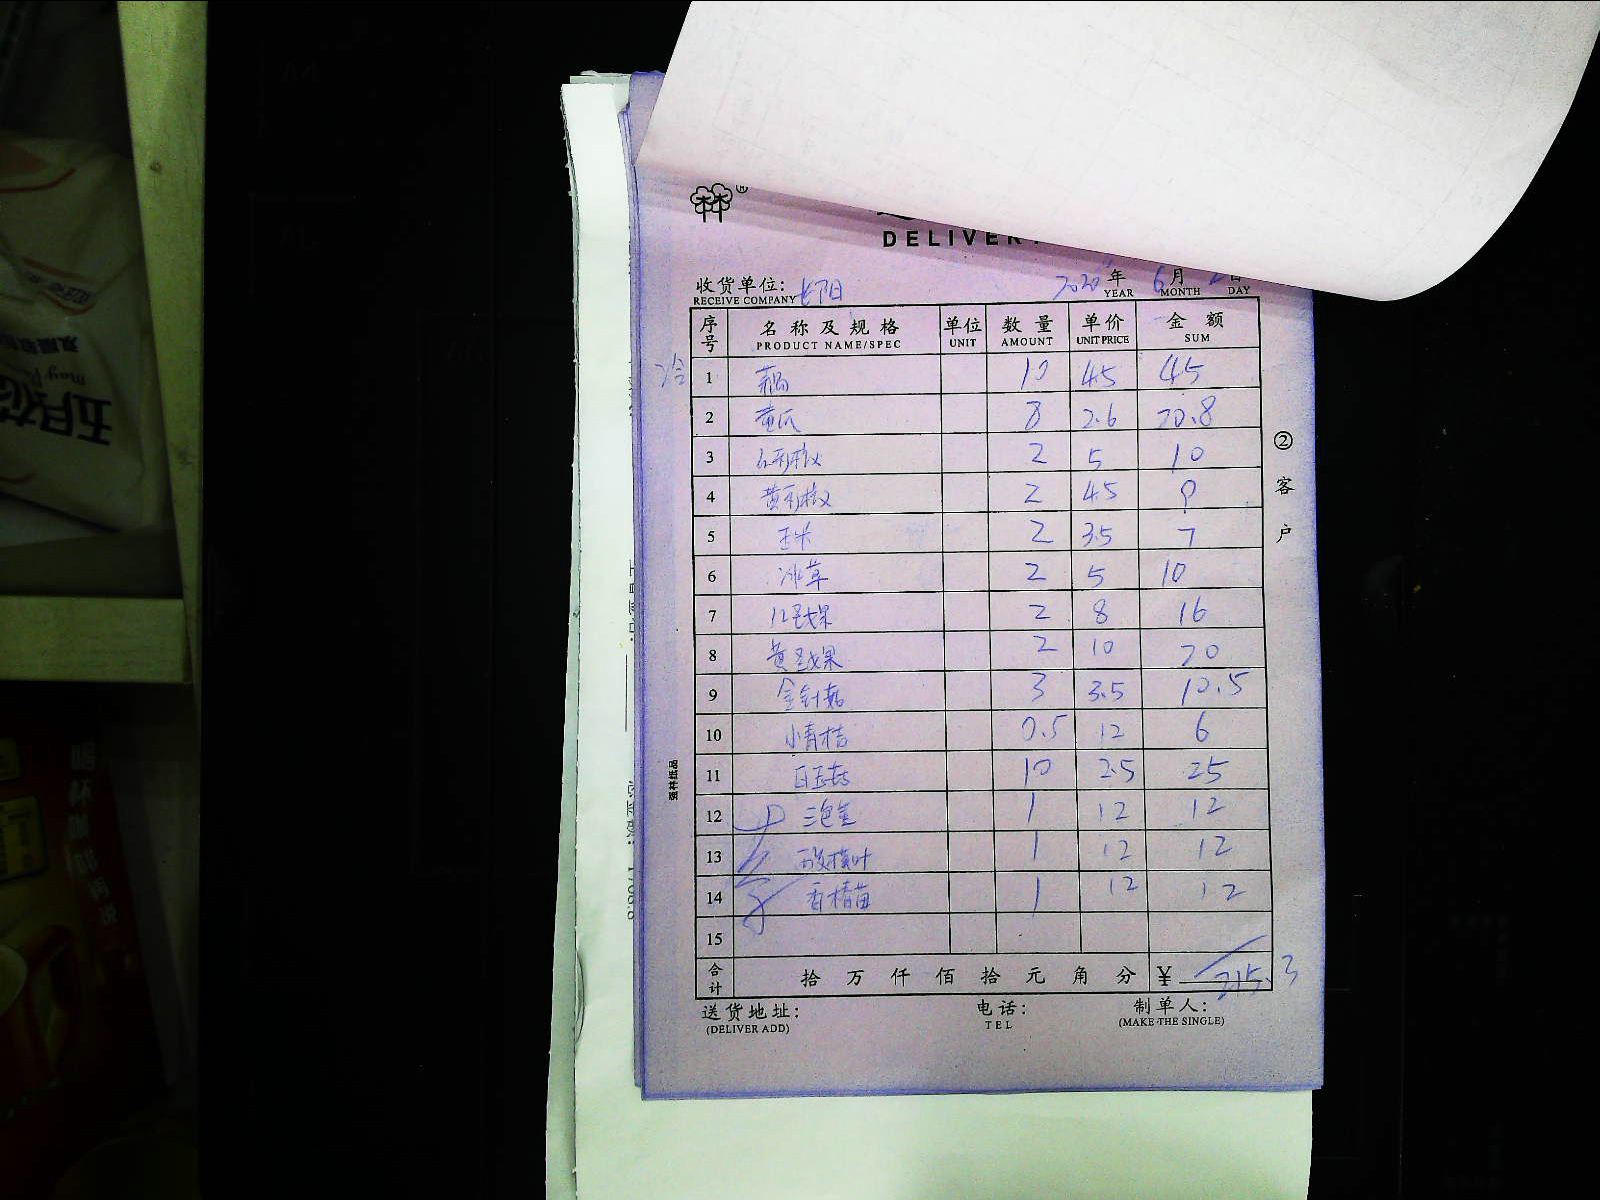 DELIVER
收货单位: 长阳 2020年 6月 日
RECEIVE COMPANY YEAR MONTH DAY
序号 名称及规格 单位 数量 单价 金额
PRODUCT NAME/SPEC UNIT AMOUNT UNIT PRICE SUM
冷 1 藕 10 4.5 45
2 黄瓜 8 2.6 20.8
3 红彩椒 2 5 10
4 黄彩椒 2 4.5 9
5 玉米 2 3.5 7
6 冰草 2 5 10
7 红圣女果 2 8 16
8 黄圣女果 2 10 20
9 金针菇 3 3.5 10.5
10 小青桔 0.5 12 6
11 白玉菇 10 2.5 25
12 1 12 12
13 酸模叶 1 12 12
14 香椿苗 1 12 12
15
合计 拾万仟佰拾元角分 ¥ 215.3
送货地址: 电话: 制单人:
(DELIVER ADD) TEL (MAKE THE SINGLE)
②客户
强林纸品